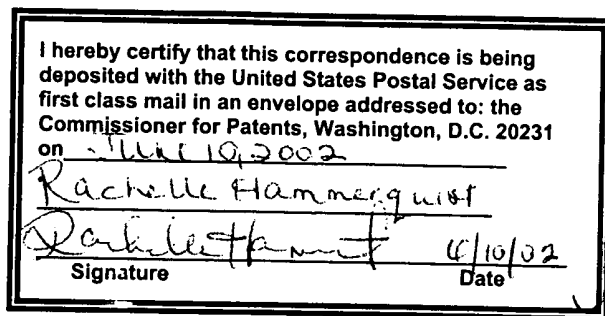 I hereby certify that this correspondence is being
deposited with the United States Postal Service as
first class mail in an envelope addressed to: the
Commissioner for Patents, Washington, D.C. 20231
on June 10, 2002
Rachelle Hammerquist
/10/02
Signature Date